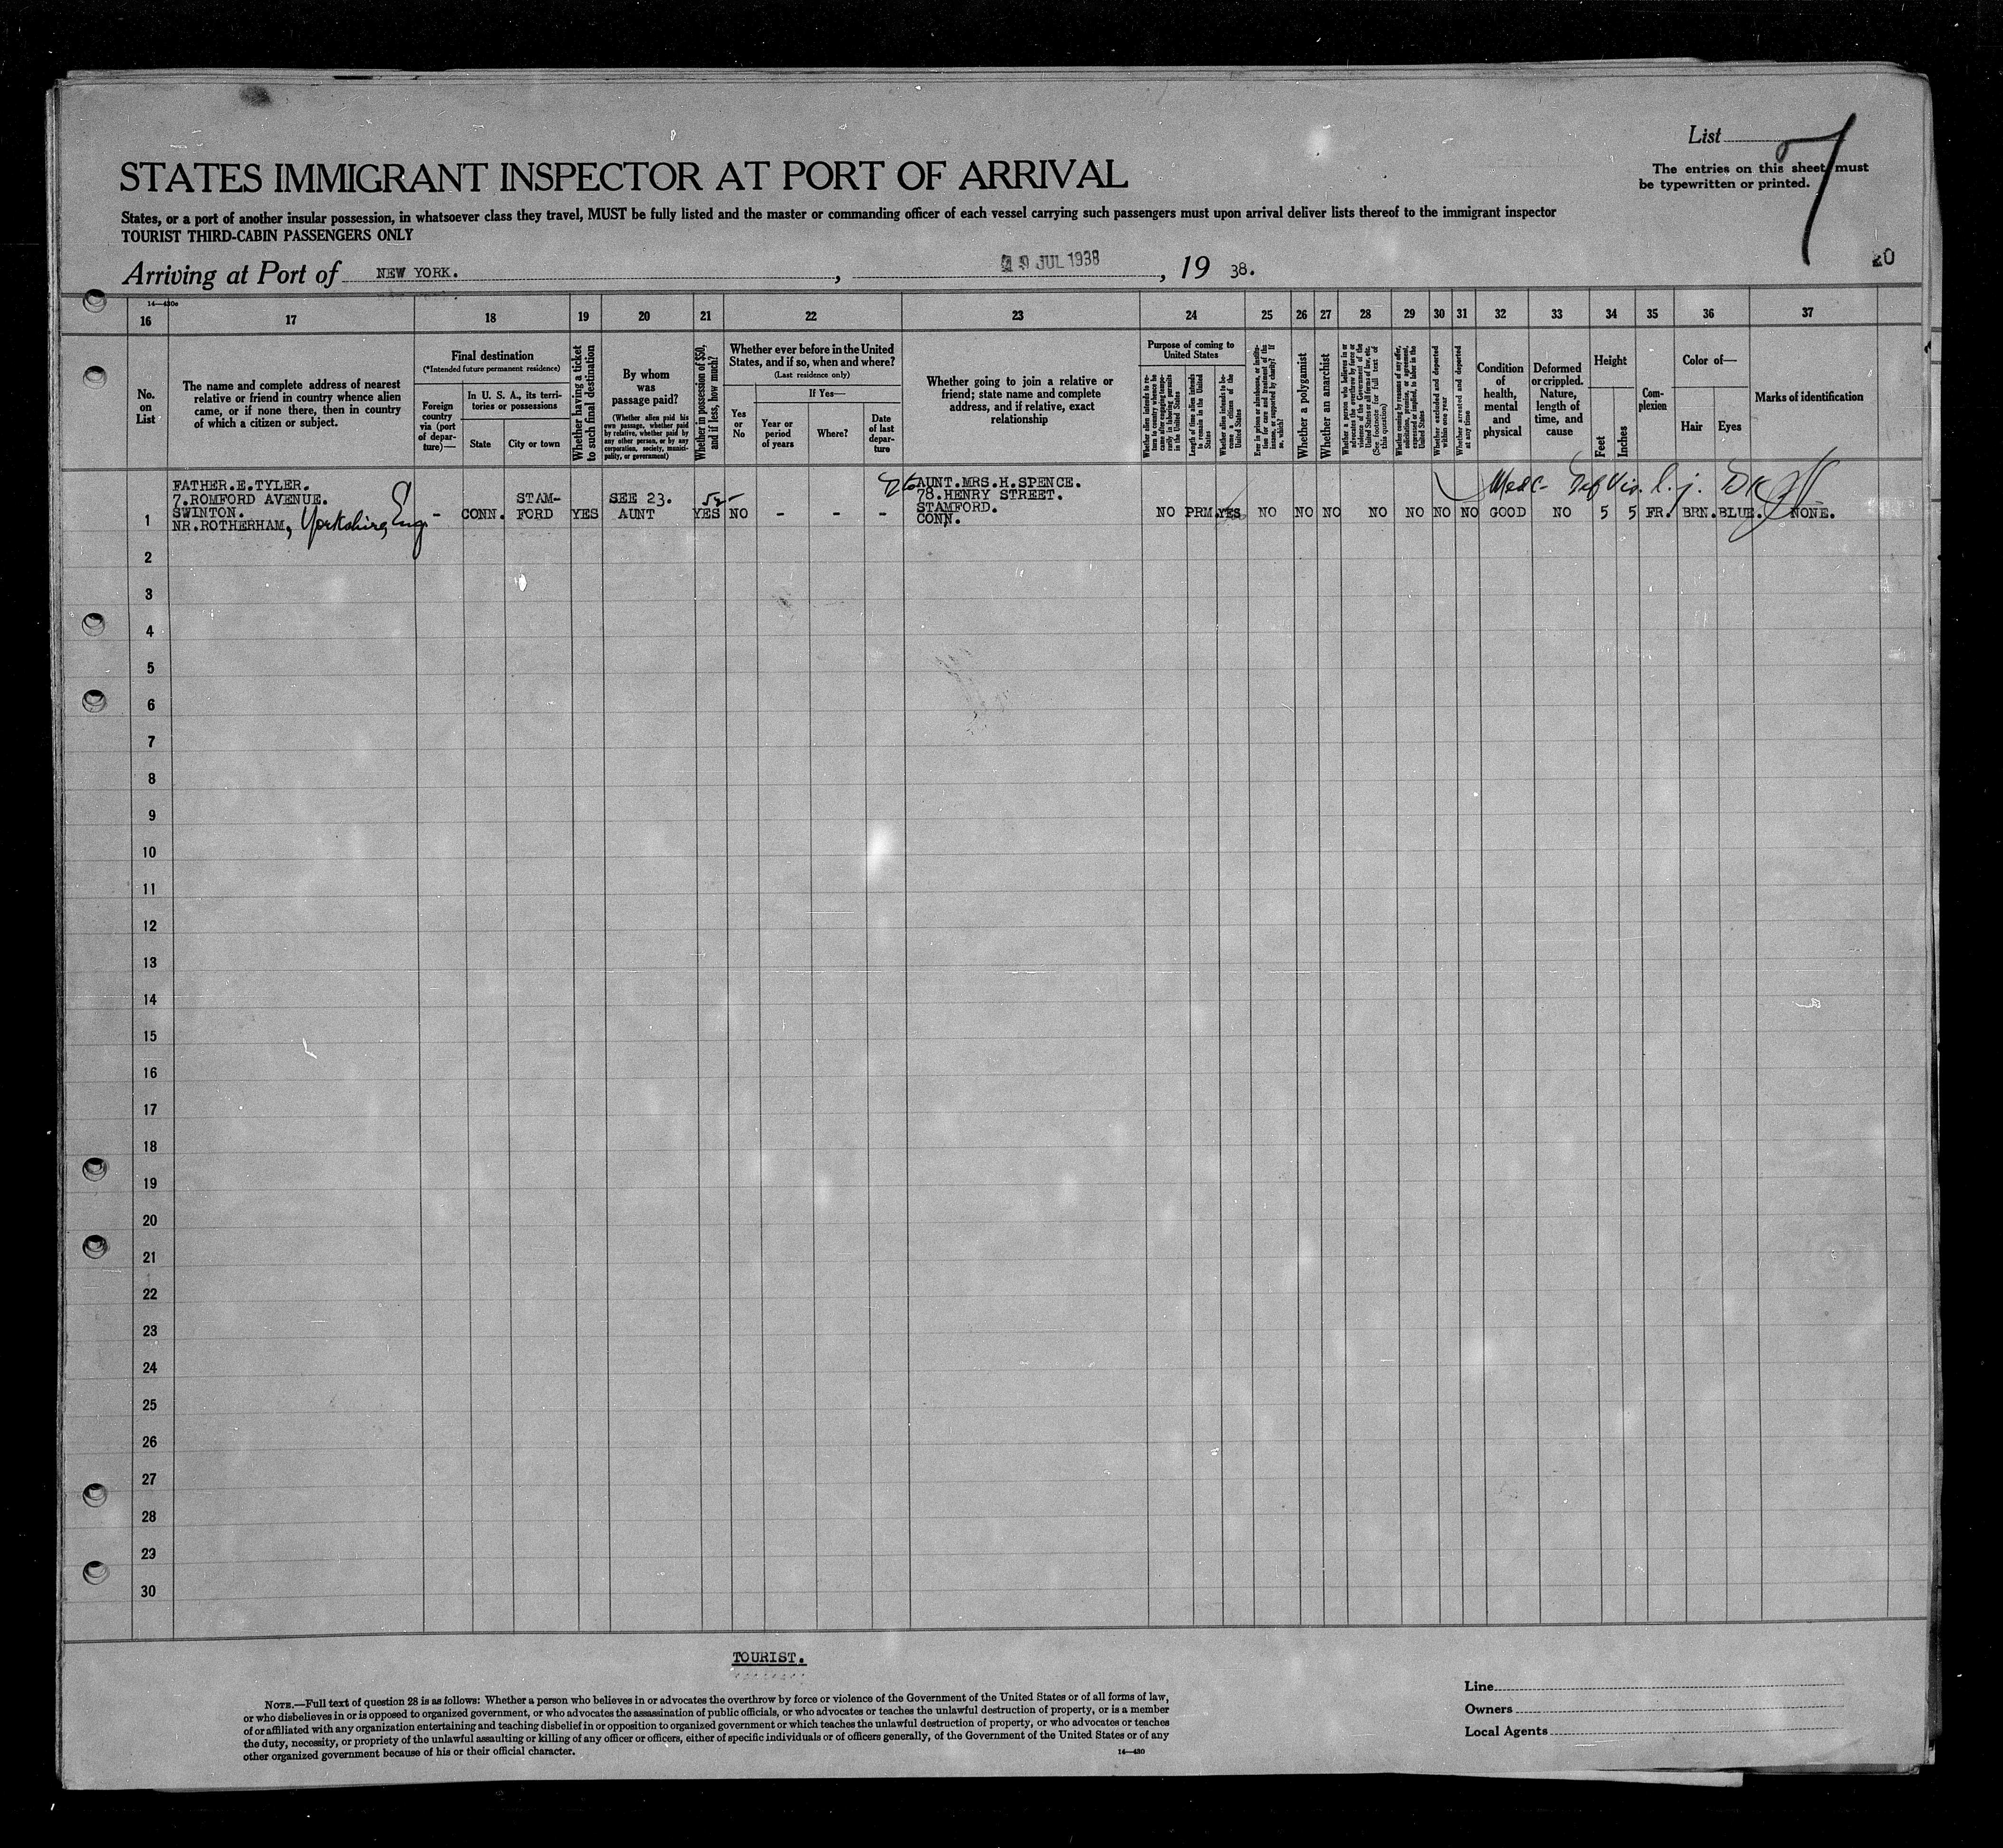 List 7
The entries on this sheet must
be typewritten or printed.
STATES IMMIGRANT INSPECTOR AT PORT OF ARRIVAL
States, or a port of another insular possession, in whatsoever class they travel, MUST be fully listed and the master or commanding officer of each vessel carrying such passengers must upon arrival deliver lists thereof to the immigrant inspector
TOURIST THIRD-CABIN PASSENGERS ONLY
Arriving at Port of NEW YORK. , JUL 1938 , 19 38.
20
14—430a
16 17 18 19 20 21 22 23 24 25 26 27 28 29 30 31 32 33 34 35 36 37
No.
on
List
The name and complete address of nearest
relative or friend in country whence alien
came, or if none there, then in country
of which a citizen or subject.
Final destination
(*Intended future permanent residence)
Foreign
country
via (port
of depar-
ture)—
In U. S. A., its terri-
tories or possessions
State
City or town
Whether having a ticket
to such final destination
By whom
was
passage paid?
(Whether alien paid his
own passage, whether paid
by relative, whether paid by
any other person, or by any
corporation, society, munici-
pality, or government)
Whether in possession of $50,
and if less, how much?
Whether ever before in the United
States, and if so, when and where?
(Last residence only)
Yes
or
No
If Yes—
Year or
period
of years
Where?
Date
of last
depar-
ture
Whether going to join a relative or
friend; state name and complete
address, and if relative, exact
relationship
Purpose of coming to
United States
Whether alien intends to re-
turn to country whence he
came after engaging tempo-
rarily in laboring pursuits
in the United States
Length of time alien intends
to remain in the United
States
Whether alien intends to be-
come a citizen of the
United States
Ever in prison or almshouse, or institu-
tion for care and treatment of the
insane, or supported by charity? If
so, which?
Whether a polygamist
Whether an anarchist
Whether a person who believes in or
advocates the overthrow by force or
violence of the Government of the
United States or all forms of law, etc.
(See footnote for full text of
this question)
Whether coming by reasons of any offer,
solicitation, promise, or agreement,
expressed or implied, to labor in the
United States
Whether excluded and deported
within one year
Whether arrested and deported
at any time
Condition
of
health,
mental
and
physical
Deformed
or crippled.
Nature,
length of
time, and
cause
Height
Feet
Inches
Com-
plexion
Color of—
Hair
Eyes
Marks of identification
FATHER.E.TYLER.
7.ROMFORD AVENUE.
SWINTON.
NR.ROTHERHAM, Yorkshire, Eng.
1 - CONN. STAM-
FORD YES SEE 23.
AUNT 52-
YES NO - - -
AUNT.MRS.H.SPENCE.
78.HENRY STREET.
STAMFORD.
CONN.
NO PRM. YES NO NO NO NO NO NO NO GOOD NO 5 5 FR. BRN. BLUE. NONE.
2
3
4
5
6
7
8
9
10
11
12
13
14
15
16
17
18
19
20
21
22
23
24
25
26
27
28
29
30
TOURIST.
NOTE.—Full text of question 28 is as follows: Whether a person who believes in or advocates the overthrow by force or violence of the Government of the United States or of all forms of law,
or who disbelieves in or is opposed to organized government, or who advocates the assassination of public officials, or who advocates or teaches the unlawful destruction of property, or is a member
of or affiliated with any organization entertaining and teaching disbelief in or opposition to organized government or which teaches the unlawful destruction of property, or who advocates or teaches
the duty, necessity, or propriety of the unlawful assaulting or killing of any officer or officers, either of specific individuals or of officers generally, of the Government of the United States or of any
other organized government because of his or their official character.
14—430
Line
Owners
Local Agents